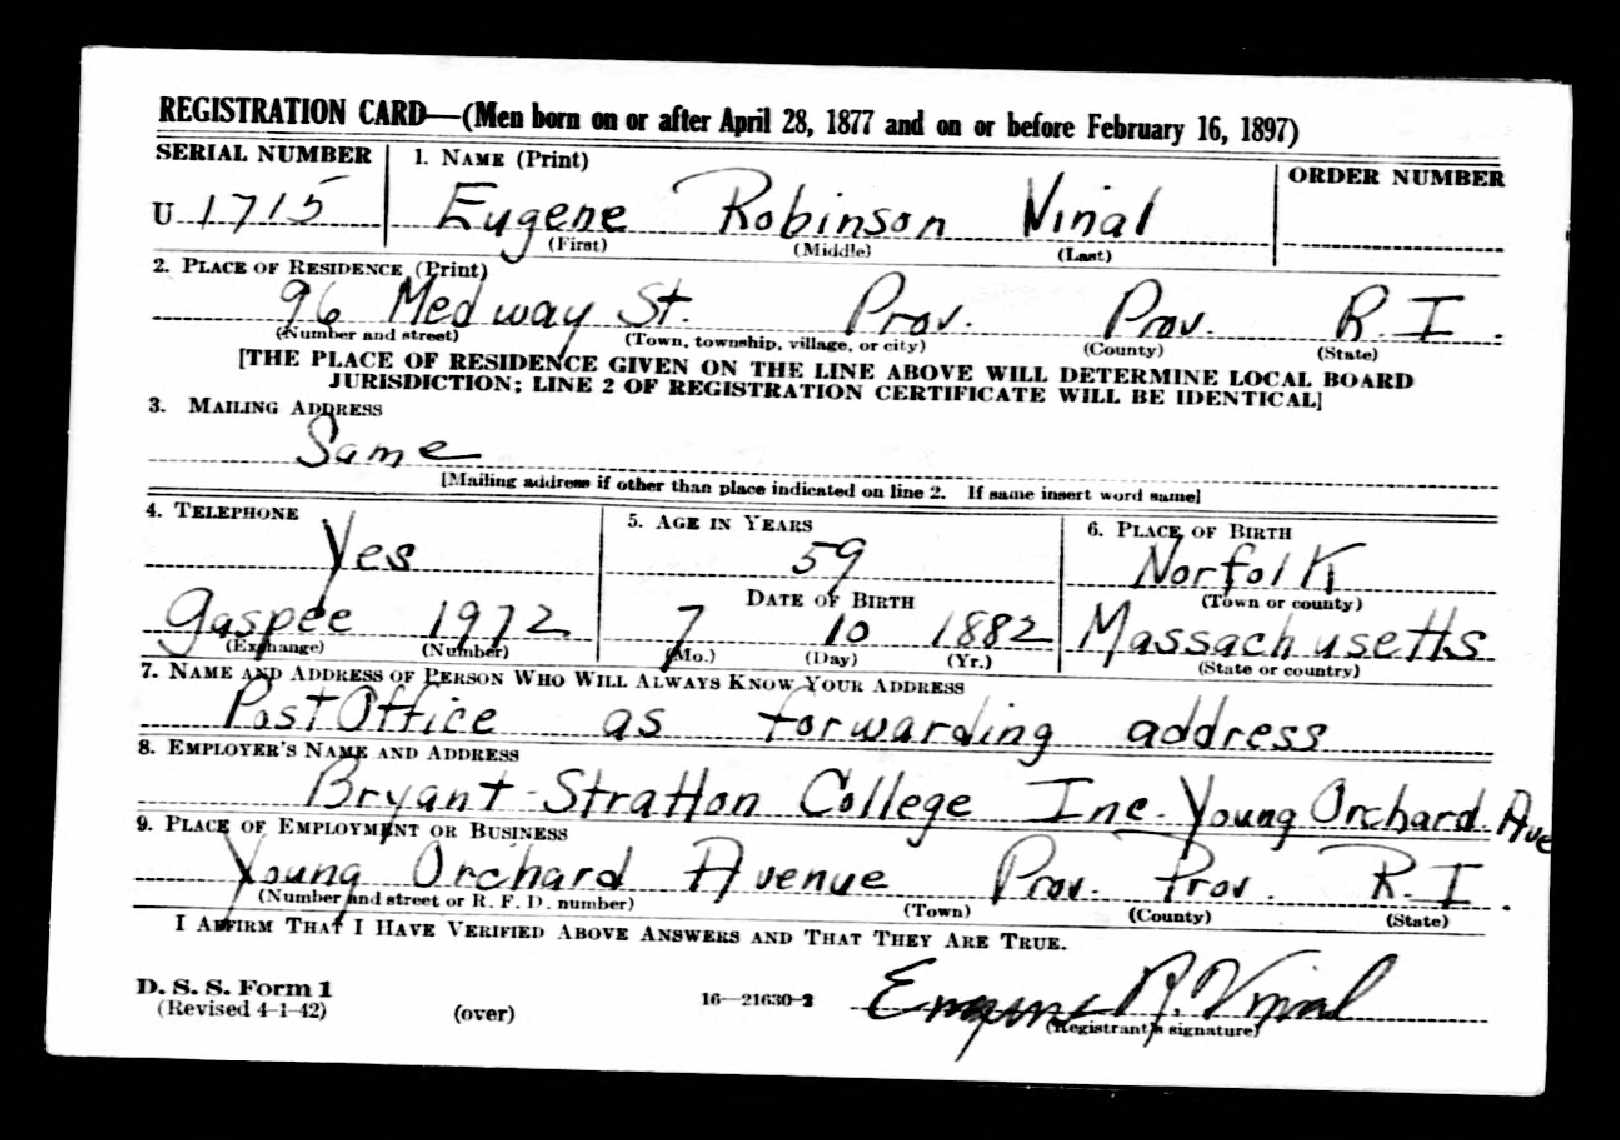 REGISTRATION CARD—(Men born on or after April 28, 1877 and on or before February 16, 1897)
SERIAL NUMBER 1. NAME (Print) ORDER NUMBER
U 1715 Eugene Robinson Vinal
(First) (Middle) (Last)
2. PLACE OF RESIDENCE (Print)
96 Medway St. Prov. Prov. R. I.
(Number and street) (Town, township, village, or city) (County) (State)
[THE PLACE OF RESIDENCE GIVEN ON THE LINE ABOVE WILL DETERMINE LOCAL BOARD
JURISDICTION; LINE 2 OF REGISTRATION CERTIFICATE WILL BE IDENTICAL]
3. MAILING ADDRESS
Same
[Mailing address if other than place indicated on line 2. If same insert word same]
4. TELEPHONE 5. AGE IN YEARS 6. PLACE OF BIRTH
Yes 59 Norfolk
DATE OF BIRTH (Town or county)
Gaspee 1972 7 10 1882 Massachusetts
(Exchange) (Number) (Mo.) (Day) (Yr.) (State or country)
7. NAME AND ADDRESS OF PERSON WHO WILL ALWAYS KNOW YOUR ADDRESS
Post Office as forwarding address
8. EMPLOYER'S NAME AND ADDRESS
Bryant-Stratton College Inc. Young Orchard Ave
9. PLACE OF EMPLOYMENT OR BUSINESS
Young Orchard Avenue Prov. Prov. R. I.
(Number and street or R. F. D. number) (Town) (County) (State)
I AFFIRM THAT I HAVE VERIFIED ABOVE ANSWERS AND THAT THEY ARE TRUE.
D. S. S. Form 1
(Revised 4-1-42) (over) 16—21630-2 Eugene R. Vinal
(Registrant's signature)